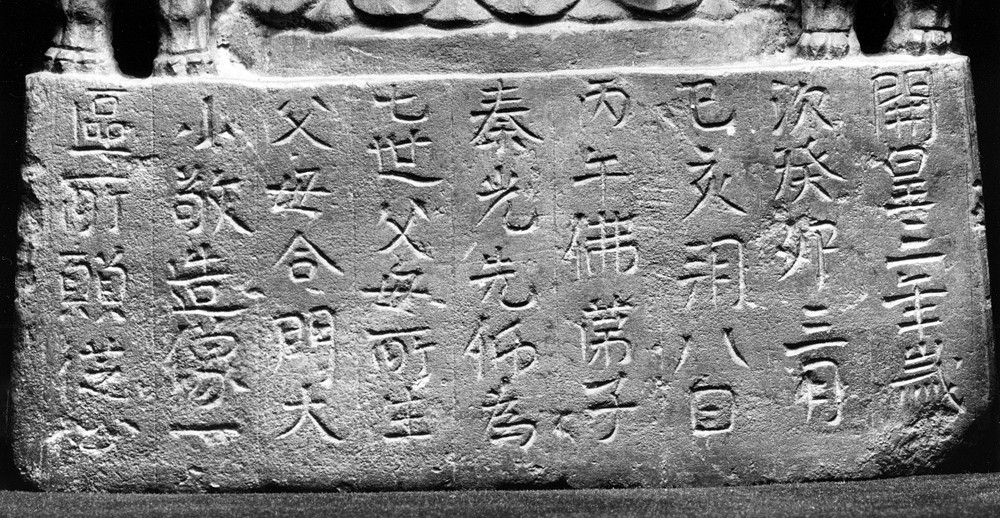 開皇三年歲
次癸卯三月
己亥朔八日
丙午佛弟子
秦光先仰為
七世父母所生
父母合門大
小敬造像一
區所願從心